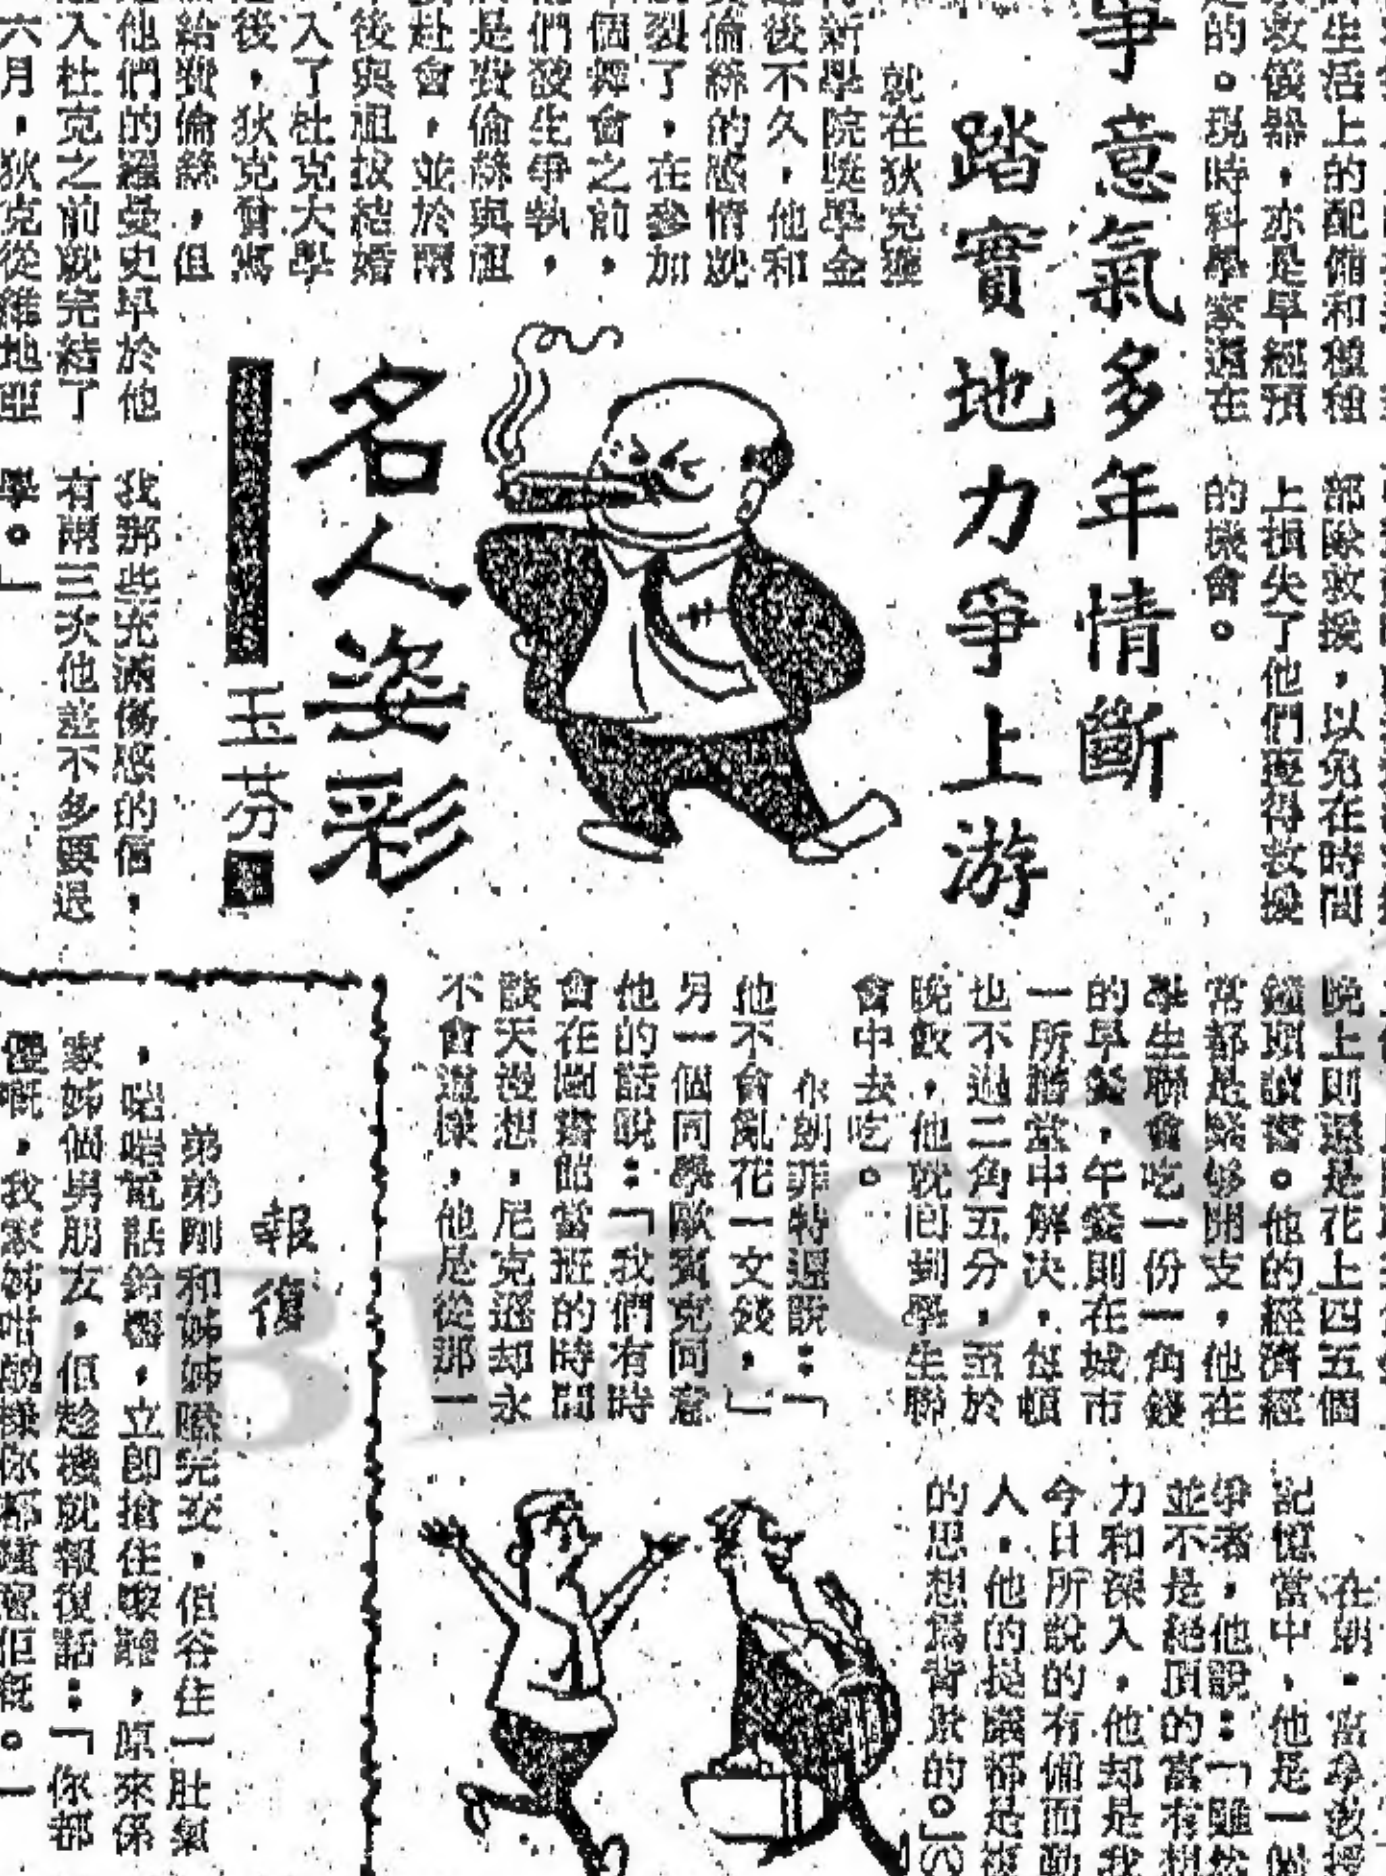 生活上的配備和種種
救儀器，亦是早經預
的。現時科學家還在
部隊救援，以免在時間
上損失了他們獲得救援
的機會。
爭意氣多年情斷
踏實地力爭上游
就在狄克獲
新學院獎學金
後不久，他和
倫絲的感情就
裂了，在參加
個舞會之前，
們發生爭執，
是費倫絲與祖
赴會，並於兩
後與祖拔結婚
入了杜克大學
後，狄克曾寫
給費倫絲，但
他們的羅曼史早於他
入杜克之前就完結了
六月，狄克從維地亞
我那些充滿傷感的信，
有兩三次他差不多要退
學。」
名人姿彩
玉芬
晚上則還是花上四五個
鐘頭讀書。他的經濟經
常都是緊够開支，他在
學生聯會吃一份一角錢
的早餐，午餐則在城市
一所膳堂中解決，每頓
也不過二角五分，至於
晚飯，他就回到學生聯
會中去吃。
永朗菲特還說：「
他不會亂花一文錢。」
另一個同學歐賓克同意
他的話說：「我們有時
會在圖書館當班的時間
談天漫想，尼克遜却永
不會這樣，他是從那一
教授
記憶當中，他是一個
爭者，他說：「雖然
並不是絕頂的富有想
力和深入，他却是我
今日所說的有備而動
人，他的是識都是
的思想為背景的。」
報復
弟弟剛和姊姊嗌完交，佢谷住一肚氣
，啱啱電話鈴響，立即搶住嚟聽，原來係
家姊個男朋友，佢趁機就報復話：「你都
儍嘅，我家姊咁醜樣你都鍾意佢嘅。」